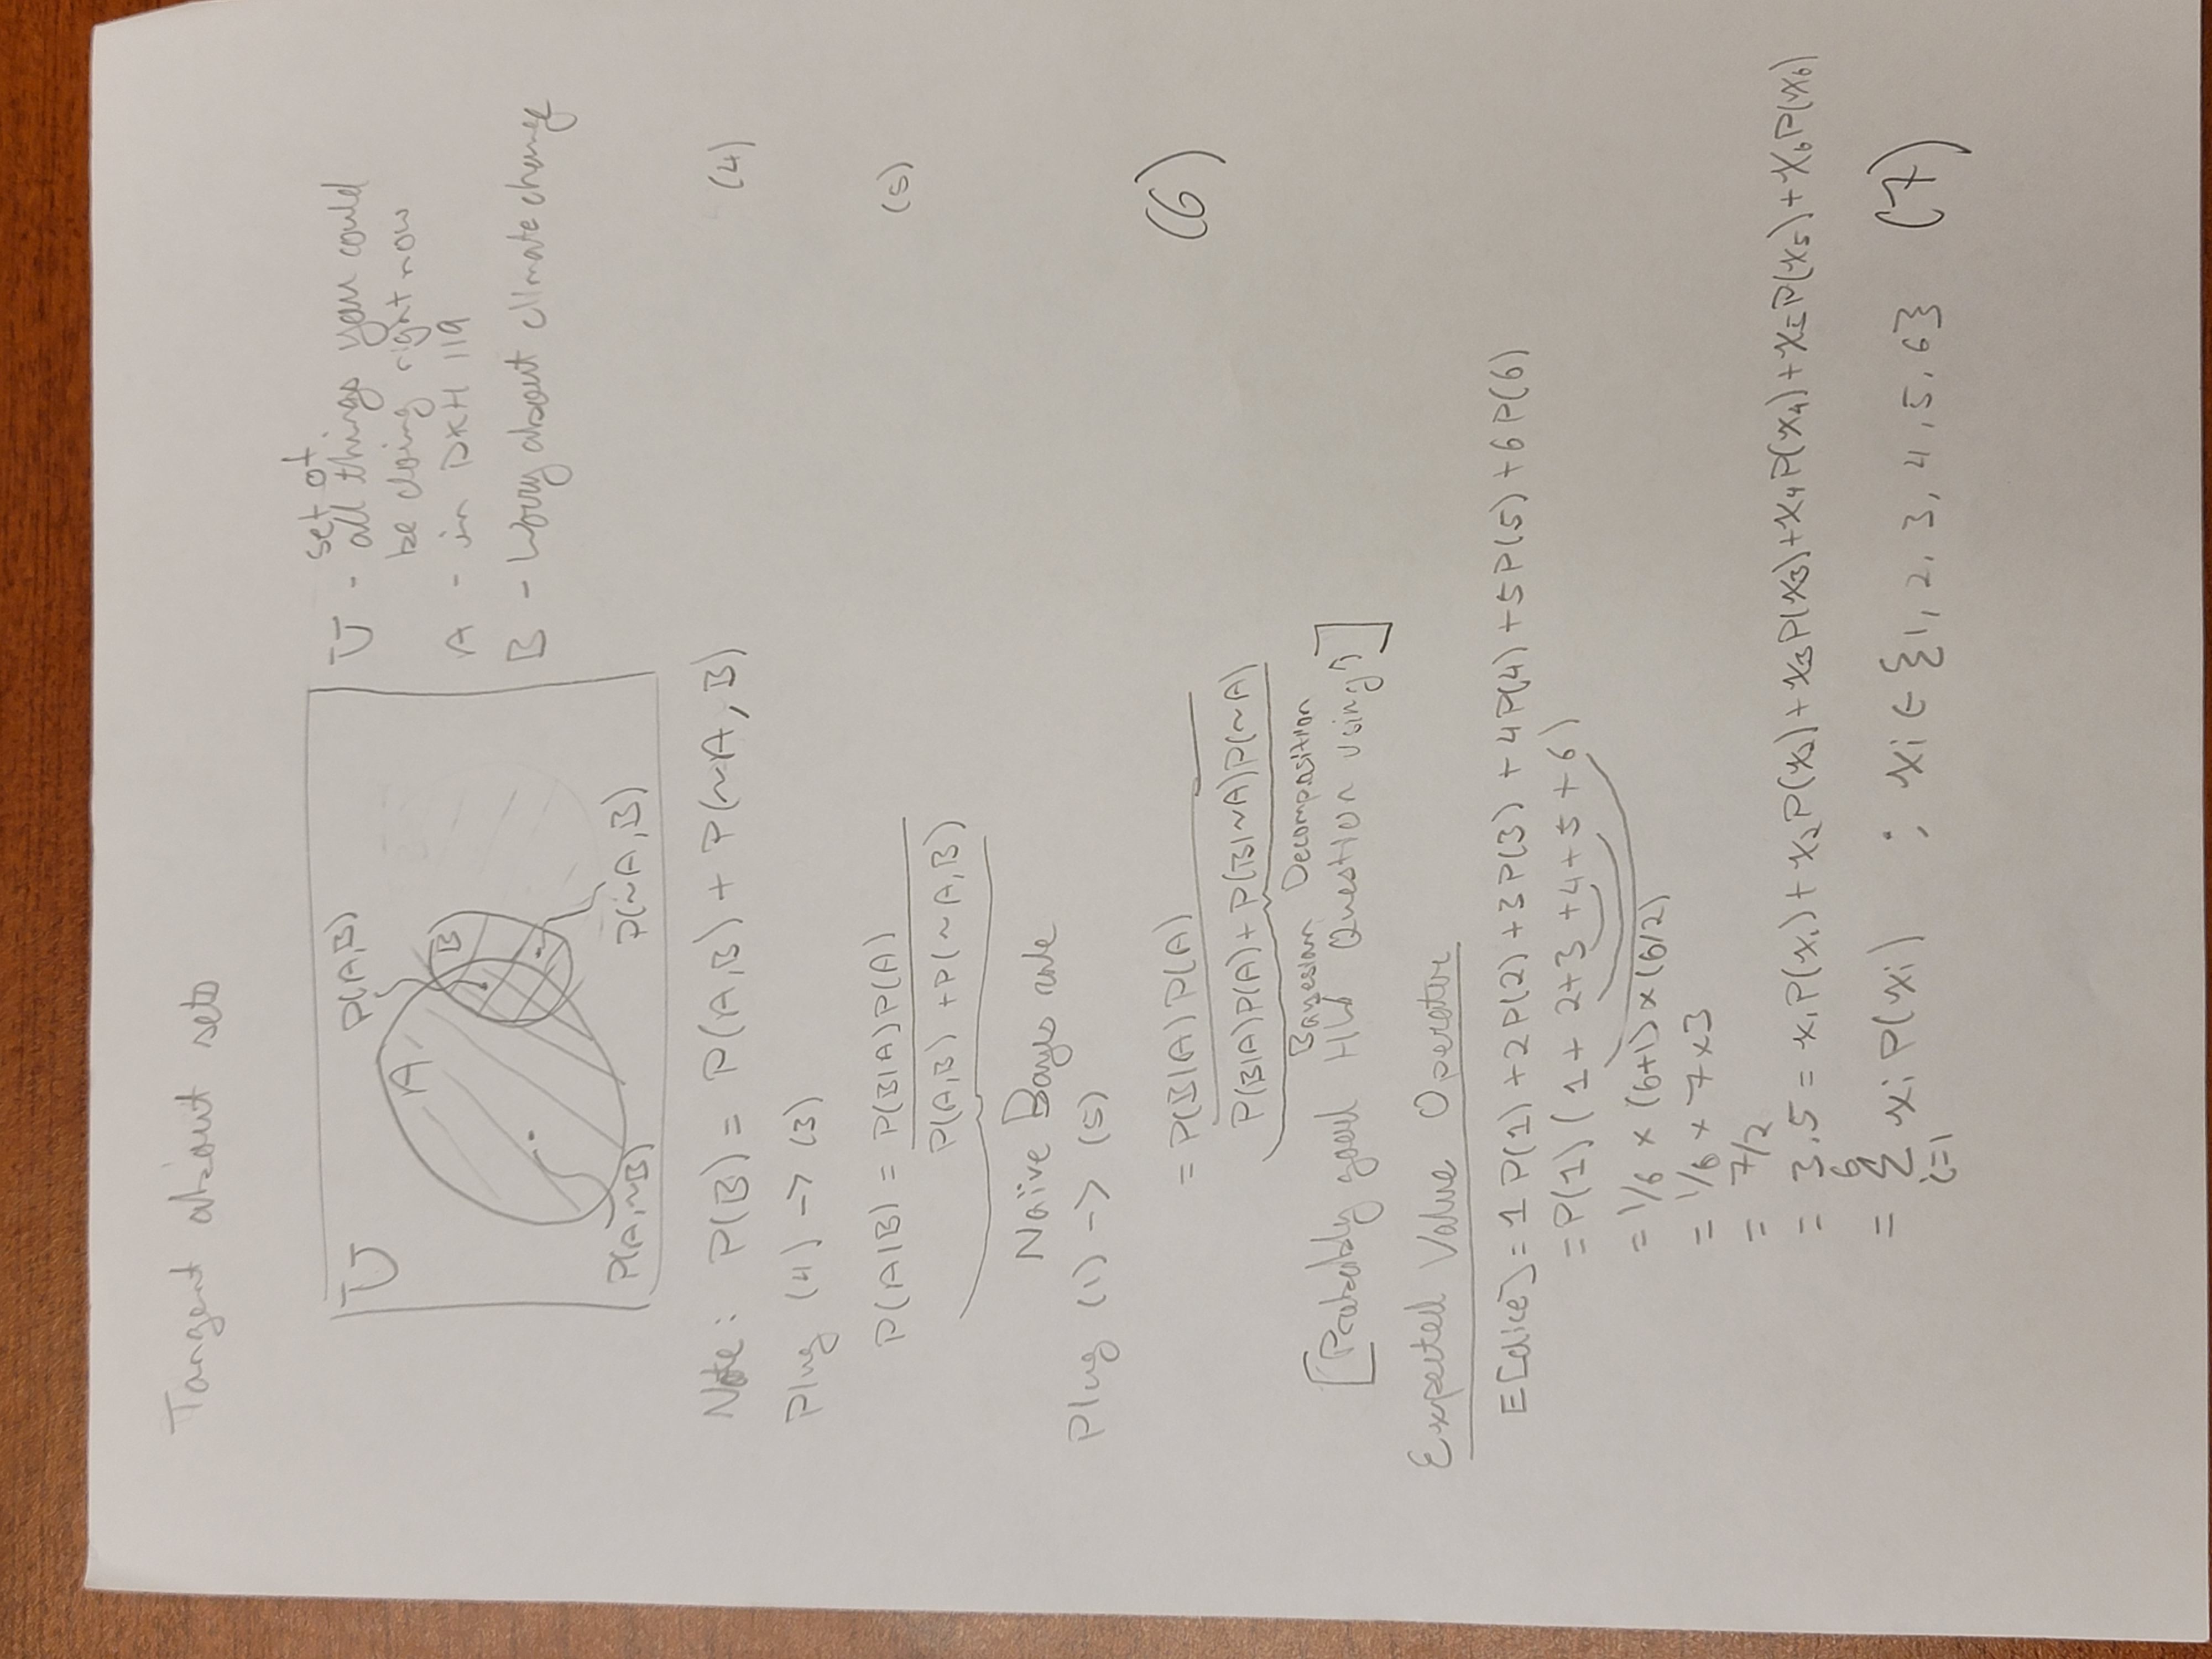 Tangent about sets
U
P(A,B)
A
B
P(A,~B)
P(~A,B)
set of
U - all things you could
be doing right now
A - in DKH 119
B - Worry about climate change
Note: P(B) = P(A,B) + P(~A,B) (4)
Plug (4) -> (3)
P(A|B) = P(B|A)P(A) (5)
P(A,B) + P(~A,B)
Naïve Bayes rule
Plug (1) -> (5)
= P(B|A)P(A) (6)
P(B|A)P(A) + P(B|~A)P(~A)
Bayesian Decomposition
[Probably good HW Question using ↑]
Expected Value Operator
E[dice] = 1 P(1) + 2P(2) + 3P(3) + 4P(4) + 5P(5) + 6P(6)
= P(1) (1 + 2 + 3 + 4 + 5 + 6)
= 1/6 × (6+1) × (6/2)
= 1/6 × 7 × 3
= 7/2
= 3.5 = x₁P(x₁) + x₂P(x₂) + x₃P(x₃) + x₄P(x₄) + x₅P(x₅) + x₆P(x₆)
6
= Σ xᵢ P(xᵢ) ; xᵢ ∈ {1, 2, 3, 4, 5, 6} (7)
i=1